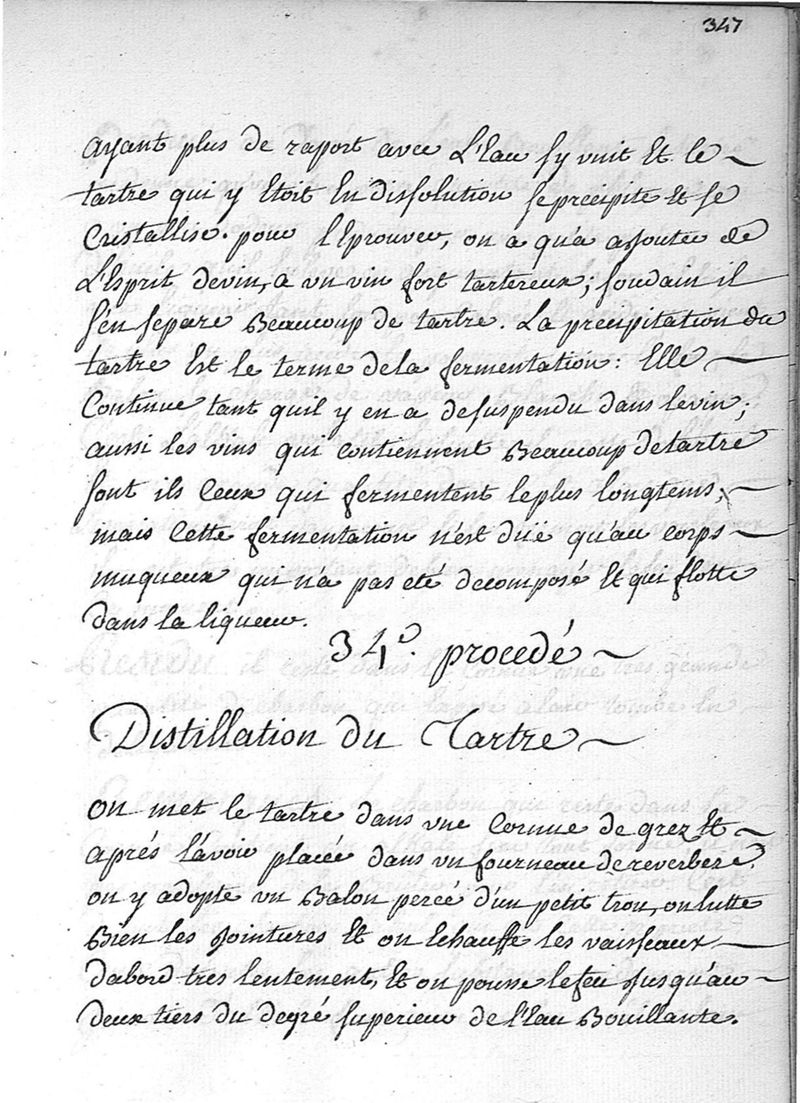 347
ayant plus de raport avec L'Eau sy unit Et le
tartre qui y Etoit En dissolution se precipite Et se
Cristallise. pour l'Eprouver, on a qu'a ajouter de
L'Esprit devin, a un vin fort tartereux; soudain il
s'en separe Beaucoup de tartre. La precipitation du
tartre Est le terme dela fermentation: Elle
Continue tant quil y en a desuspendu dans levin;
aussi les vins qui contiennent Beaucoup detartre
sont ils Ceux qui fermentent leplus longtems;
mais Cette fermentation n'est düe qu'au corps
muqueux qui n'a pas eté decomposé Et qui flotte
dans la liqueur.
34e. procedé
Distillation du Tartre
on met le tartre dans une Cornue de grez Et
aprés l'avoir placée dans un fourneau dereverbere.
on y adopte un Balon percé d'un petit trou, on lutte
Bien les jointures Et on Echauffe les vaisseaux
dabord tres lentement, Et on pousse lefeu jusqu'au
deux tiers du degré superieur de l'Eau Bouillante.